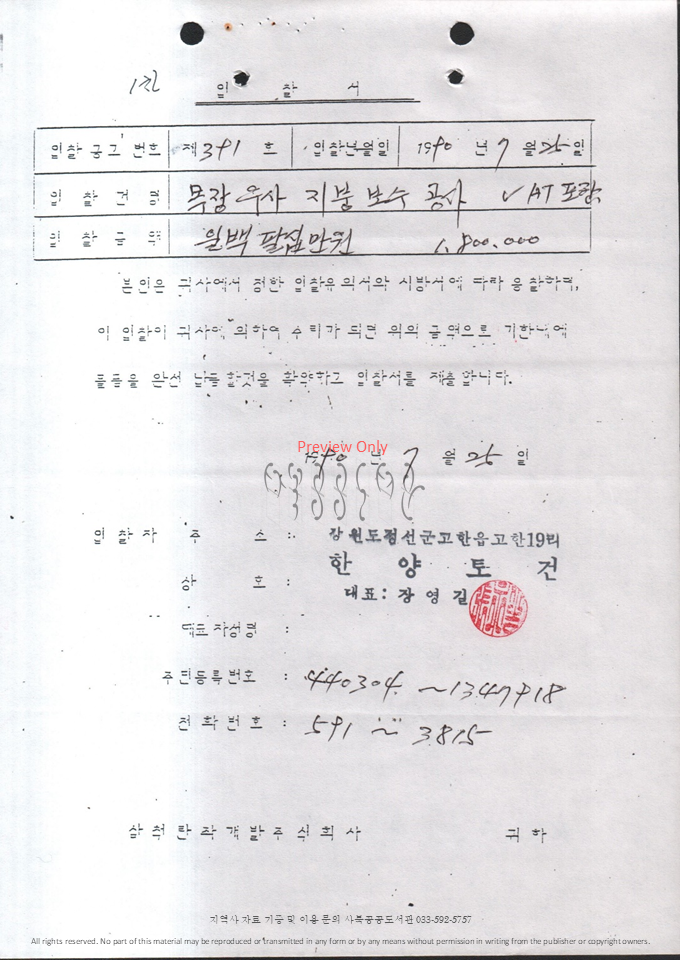 1차
입 찰 서
입찰공고 번호 제 391 호 입찰년월일 1990 년 7 월 25 일
입 찰 건 명 목장 우사 지붕 보수 공사 VAT 포함
입 찰 금 액 일백 팔십만원 1,800,000
본인은 귀사에서 정한 입찰유의서와 시방서에 따라 응찰하며,
이 입찰이 귀사에 의하여 수락가 되면 위의 금액으로 기한내에
물품을 완전 납품할것을 확약하고 입찰서를 제출합니다.
Preview Only
1990 년 7 월 25 일
입 찰 자 주 소 : 강원도정선군고한읍고한19리
한 양 토 건
상 호 :
대표: 장 영 길
대표자성명 :
주민등록번호 : 440304 ~
전 화 번 호 : 591 ~ 3815
삼척탄좌개발주식회사 귀하
지역사 자료 기증 및 이용 문의 사북공공도서관 033-592-5757
All rights reserved. No part of this material may be reproduced or transmitted in any form or by any means without permission in writing from the publisher or copyright owners.